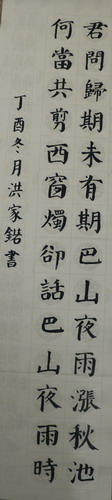 君問歸期未有期巴山夜雨漲秋池
何當共剪西窗燭卻話巴山夜雨時
丁酉冬月洪家鍇書